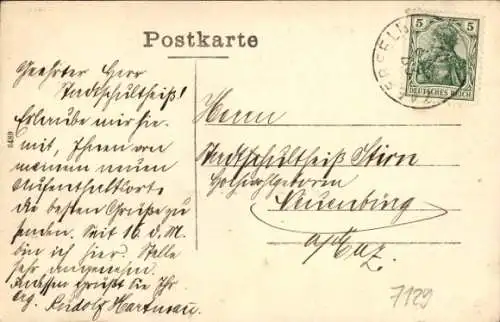 Postkarte
5 5
DEUTSCHES REICH
Geehrter Herr
Stadtschultheiß!
Erlaube mir hie-
mit, Ihnen von
meinem neuen
Aufenthaltsorte
die besten Grüße zu
senden. Seit 16. d. M.
bin ich hier. Stelle
sehr angenehm.
Indessen grüßt Sie Ihr
erg. Rudolf Hartmann.
Herrn
Stadtschultheiß Stirn
Hochwohlgeboren
Neuenbürg
a/Enz.
7129